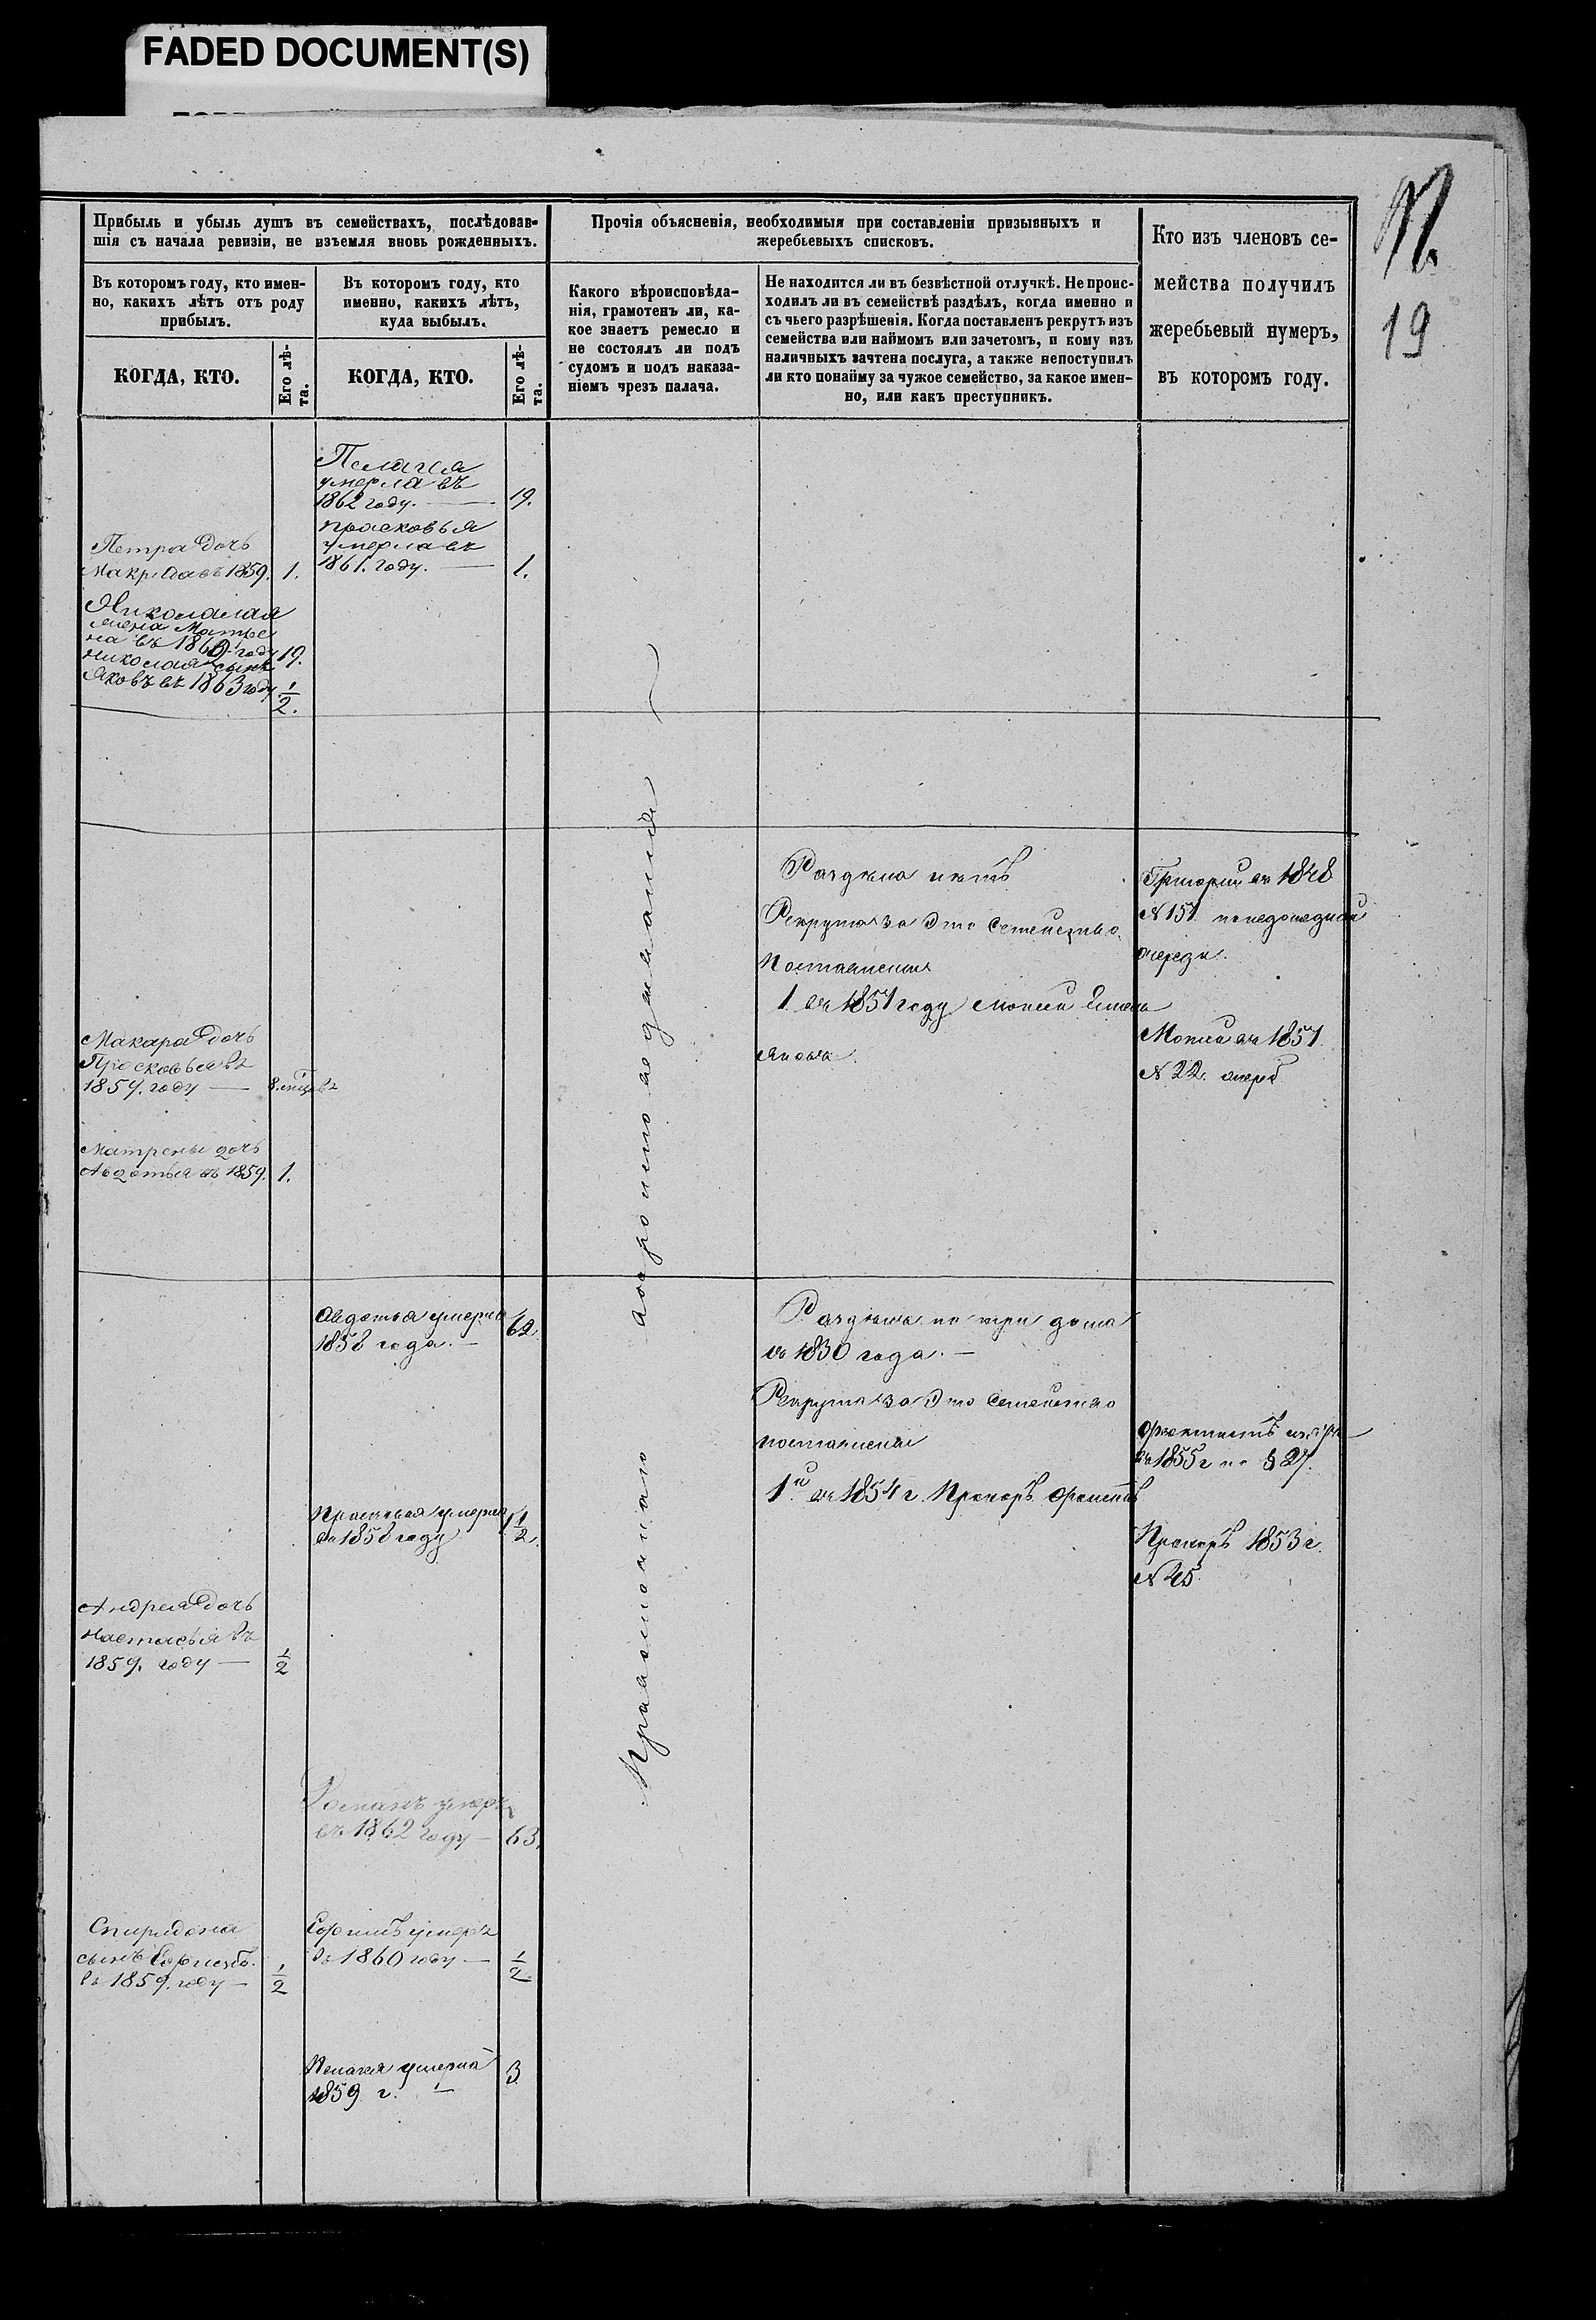 FADED DOCUMENT(S)
19
Прибыль и убыль душъ въ семействахъ, послѣдовав-
шія съ начала ревизіи, не изъемля вновь рожденныхъ.
Въ которомъ году, кто имен-
но, какихъ лѣтъ отъ роду
прибылъ.
КОГДА, КТО.
Его лѣ-
та.
Въ которомъ году, кто
именно, какихъ лѣтъ,
куда выбылъ.
КОГДА, КТО.
Его лѣ-
та.
Прочія объясненія, необходимыя при составленіи призывныхъ и
жеребьевыхъ списковъ.
Какого вѣроисповѣда-
нія, грамотенъ ли, ка-
кое знаетъ ремесло и
не состоялъ ли подъ
судомъ и подъ наказа-
ніемъ чрезъ палача.
Не находится ли въ безвѣстной отлучкѣ. Не проис-
ходилъ ли въ семействѣ раздѣлъ, когда именно и
съ чьего разрѣшенія. Когда поставленъ рекрутъ изъ
семейства или наймомъ или зачетомъ, и кому изъ
наличныхъ зачтена послуга, а также непоступилъ
ли кто понайму за чужое семейство, за какое имен-
но, или какъ преступникъ.
Кто изъ членовъ се-
мейства получилъ
жеребьевый нумеръ,
въ которомъ году.
Пелагея
умерла въ
1862 году. 19.
Прасковья
умерла въ
1861. году. 1.
Петра дочь
Макрида въ 1859. 1.
Николая
жена Матре
на въ 1860 году 19.
Николая сынъ
Яковъ въ 1863 году 1/2.
Раздѣла нѣтъ
Рекрута за это семейство
поставлены
1. въ 1851 году Мокей
Григорій въ 1848
N 151
очереди.
Мокей въ 1851.
N 22.
Макара дочь
Прасковья въ
1859. году
Матрены дочь
Авдотья въ 1859. 1.
Православнаго вероисповеданія
Авдотья умерла 62.
1858 года.
Раздѣлъ на три дома
въ 1830 года.
Рекрута за это семейство
поставлены
1й въ 1854 г. Прокоръ
въ 1855 г
Прокоръ 1853 г.
N 45
Прасковья умерла
въ 1858 году
Андрея дочь
Настасья въ
1859. году 1/2
Романъ умеръ
въ 1862 году 63.
Спиридона
сынъ Ефимъ
въ 1859. году 1/2
Ефимъ умеръ
въ 1860 году 1/2.
Пелагея умерла 3
1859 г.